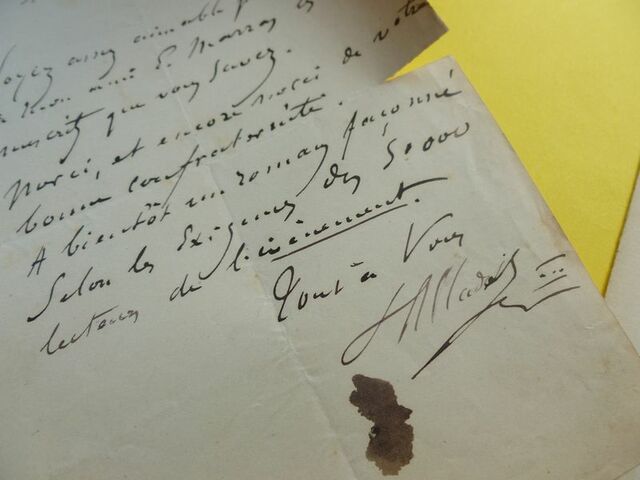 Soyez assez aimable p
à mon ami E. Marras
nuscrit que vous savez.
Merci, et encore merci de votre
bonne confraternité.
A bientôt un roman façonné
Selon les Exigences des 50000
lecteurs de l'événement.
Tout à Vous